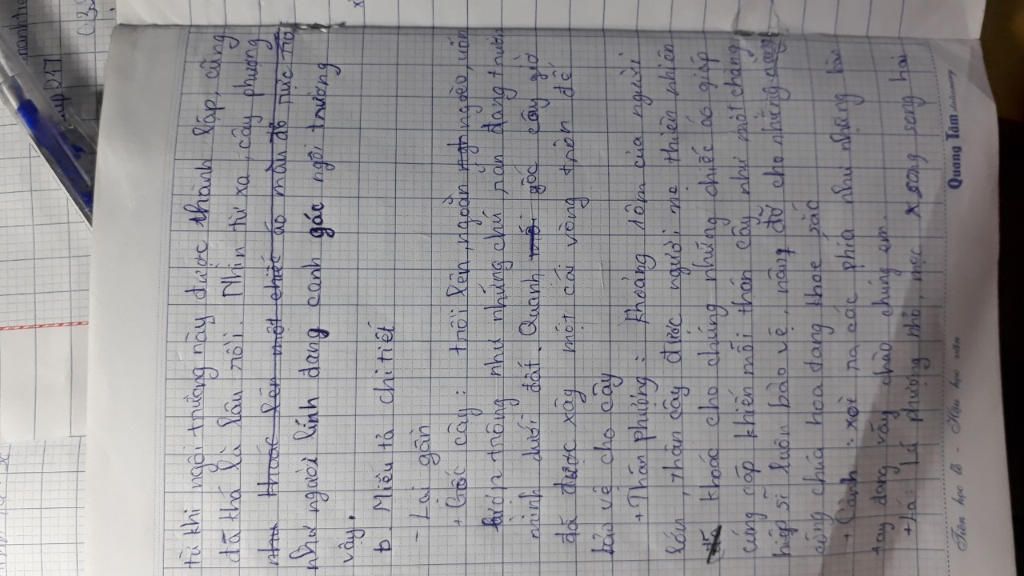 từ khi ngôi trường này được thành lập, cũng
đã khá là lâu rồi. Nhìn từ xa, cây phượng
như khoác lên một chiếc áo màu đỏ rực rỡ
như người lính đang canh gác ngôi trường
vậy.
b. Miêu tả chi tiết
- Lại gần
+ Gốc cây: trồi lên, ngoằn ngoèo, uốn
khúc trông như những chú rắn đang trườn
mình dưới đất. Quanh gốc cây giờ
đã được xây một cái vòng tròn để
bảo vệ cho cây
+ Thân phượng: khoảng 1 ôm của người
lớn, thân cây được người mẹ thiên nhiên
khoác cho chúng những chiếc áo giáp
cứng cáp khiến mỗi thân cây như một chàng
hiệp sĩ luôn bảo vệ, nâng đỡ cho những nàng
công chúa hoa đang khoe sắc
+ Cành: xòe ra các phía như những bàn
tay đang vẫy chào chúng em.
+ Lá: lá phượng nhỏ, mọc song song hai
Tiên học lễ - Hậu học văn
Quang Tam